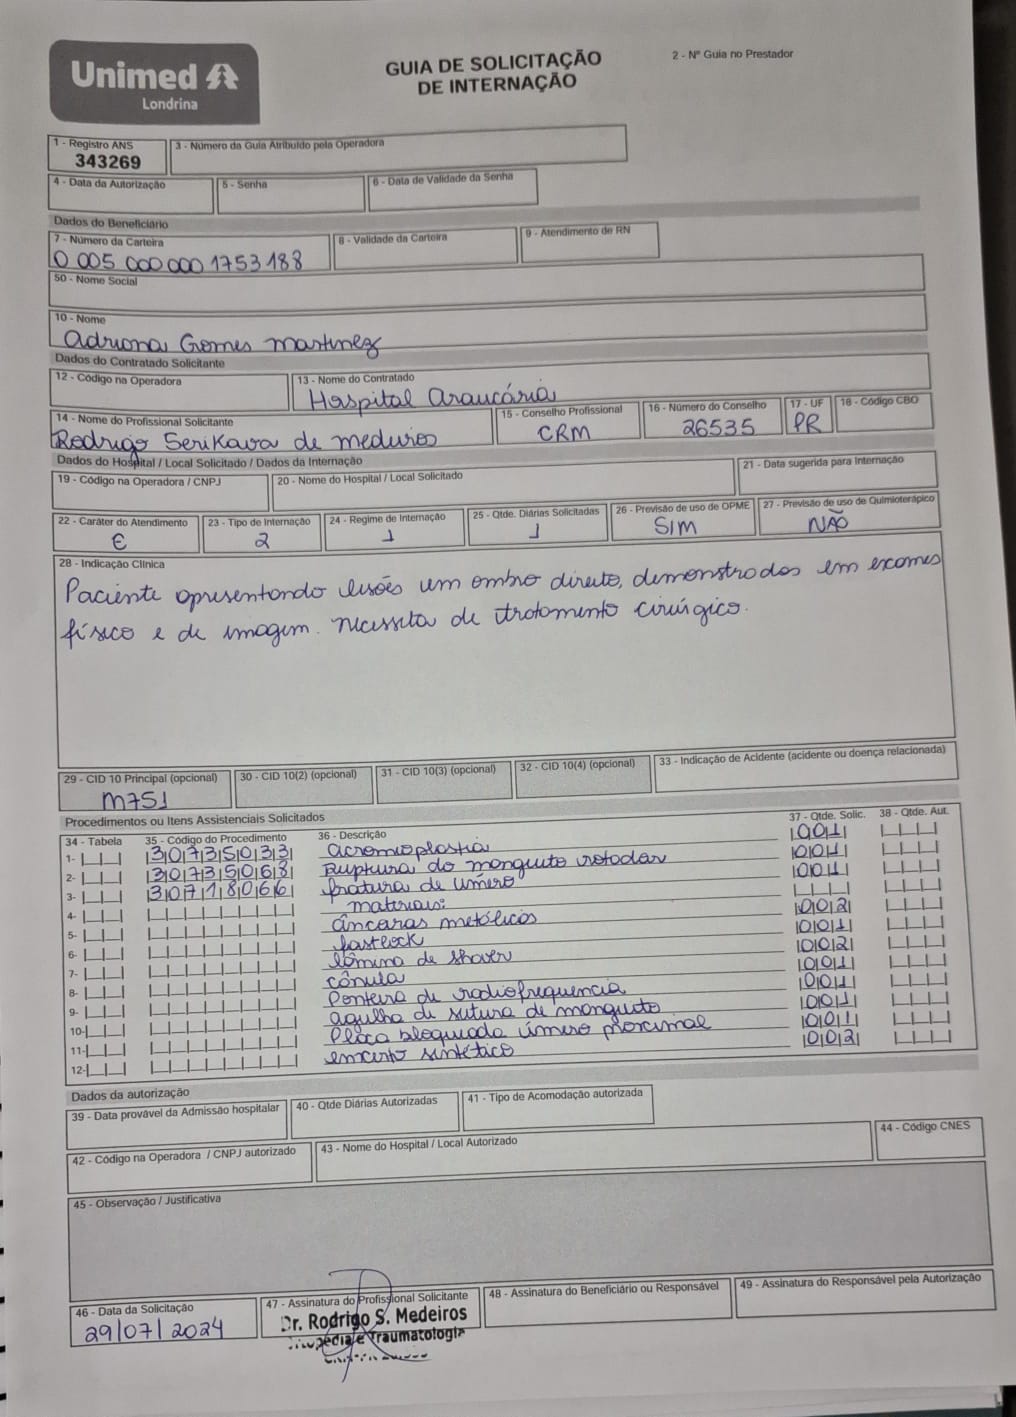 Unimed
Londrina
GUIA DE SOLICITAÇÃO
DE INTERNAÇÃO
2 - Nº Guia no Prestador
1 - Registro ANS
343269
3 - Número da Guia Atribuído pela Operadora
4 - Data da Autorização
5 - Senha
6 - Data de Validade da Senha
Dados do Beneficiário
7 - Número da Carteira
0 005 000 000 1753188
8 - Validade da Carteira
9 - Atendimento de RN
50 - Nome Social
10 - Nome
Adriana Gomes Martinez
Dados do Contratado Solicitante
12 - Código na Operadora
13 - Nome do Contratado
Hospital Araucária
14 - Nome do Profissional Solicitante
Rodrigo Serikava de Medeiros
15 - Conselho Profissional
CRM
16 - Número do Conselho
26535
17 - UF
PR
18 - Código CBO
Dados do Hospital / Local Solicitado / Dados da Internação
19 - Código na Operadora / CNPJ
20 - Nome do Hospital / Local Solicitado
21 - Data sugerida para Internação
22 - Caráter do Atendimento
E
23 - Tipo de Internação
2
24 - Regime de Internação
1
25 - Qtde. Diárias Solicitadas
1
26 - Previsão de uso de OPME
SIM
27 - Previsão de uso de Quimioterápico
NÃO
28 - Indicação Clínica
Paciente apresentando lesões em ombro direito, demonstrados em exames
físico e de imagem. Necessita de tratamento cirúrgico.
29 - CID 10 Principal (opcional)
M751
30 - CID 10(2) (opcional)
31 - CID 10(3) (opcional)
32 - CID 10(4) (opcional)
33 - Indicação de Acidente (acidente ou doença relacionada)
Procedimentos ou Itens Assistenciais Solicitados
34 - Tabela 35 - Código do Procedimento 36 - Descrição 37 - Qtde. Solic. 38 - Qtde. Aut.
1- 30735033 acromioplastia 001
2- 30735068 Ruptura do manguito rotador 001
3- 30718066 fratura de úmero 001
4- materiais:
5- âncoras metálicas 002
6- fastlock 001
7- lâmina de shaver 002
8- cânula 001
9- Ponteira de radiofrequencia 001
10- agulha de sutura de manguito 001
11- Placa bloqueada úmero proximal 001
12- enxerto sintético 002
Dados da autorização
39 - Data provável da Admissão hospitalar
40 - Qtde Diárias Autorizadas
41 - Tipo de Acomodação autorizada
42 - Código na Operadora / CNPJ autorizado
43 - Nome do Hospital / Local Autorizado
44 - Código CNES
45 - Observação / Justificativa
46 - Data da Solicitação
29/07/2024
47 - Assinatura do Profissional Solicitante
Dr. Rodrigo S. Medeiros
Ortopedia e Traumatologia
48 - Assinatura do Beneficiário ou Responsável
49 - Assinatura do Responsável pela Autorização